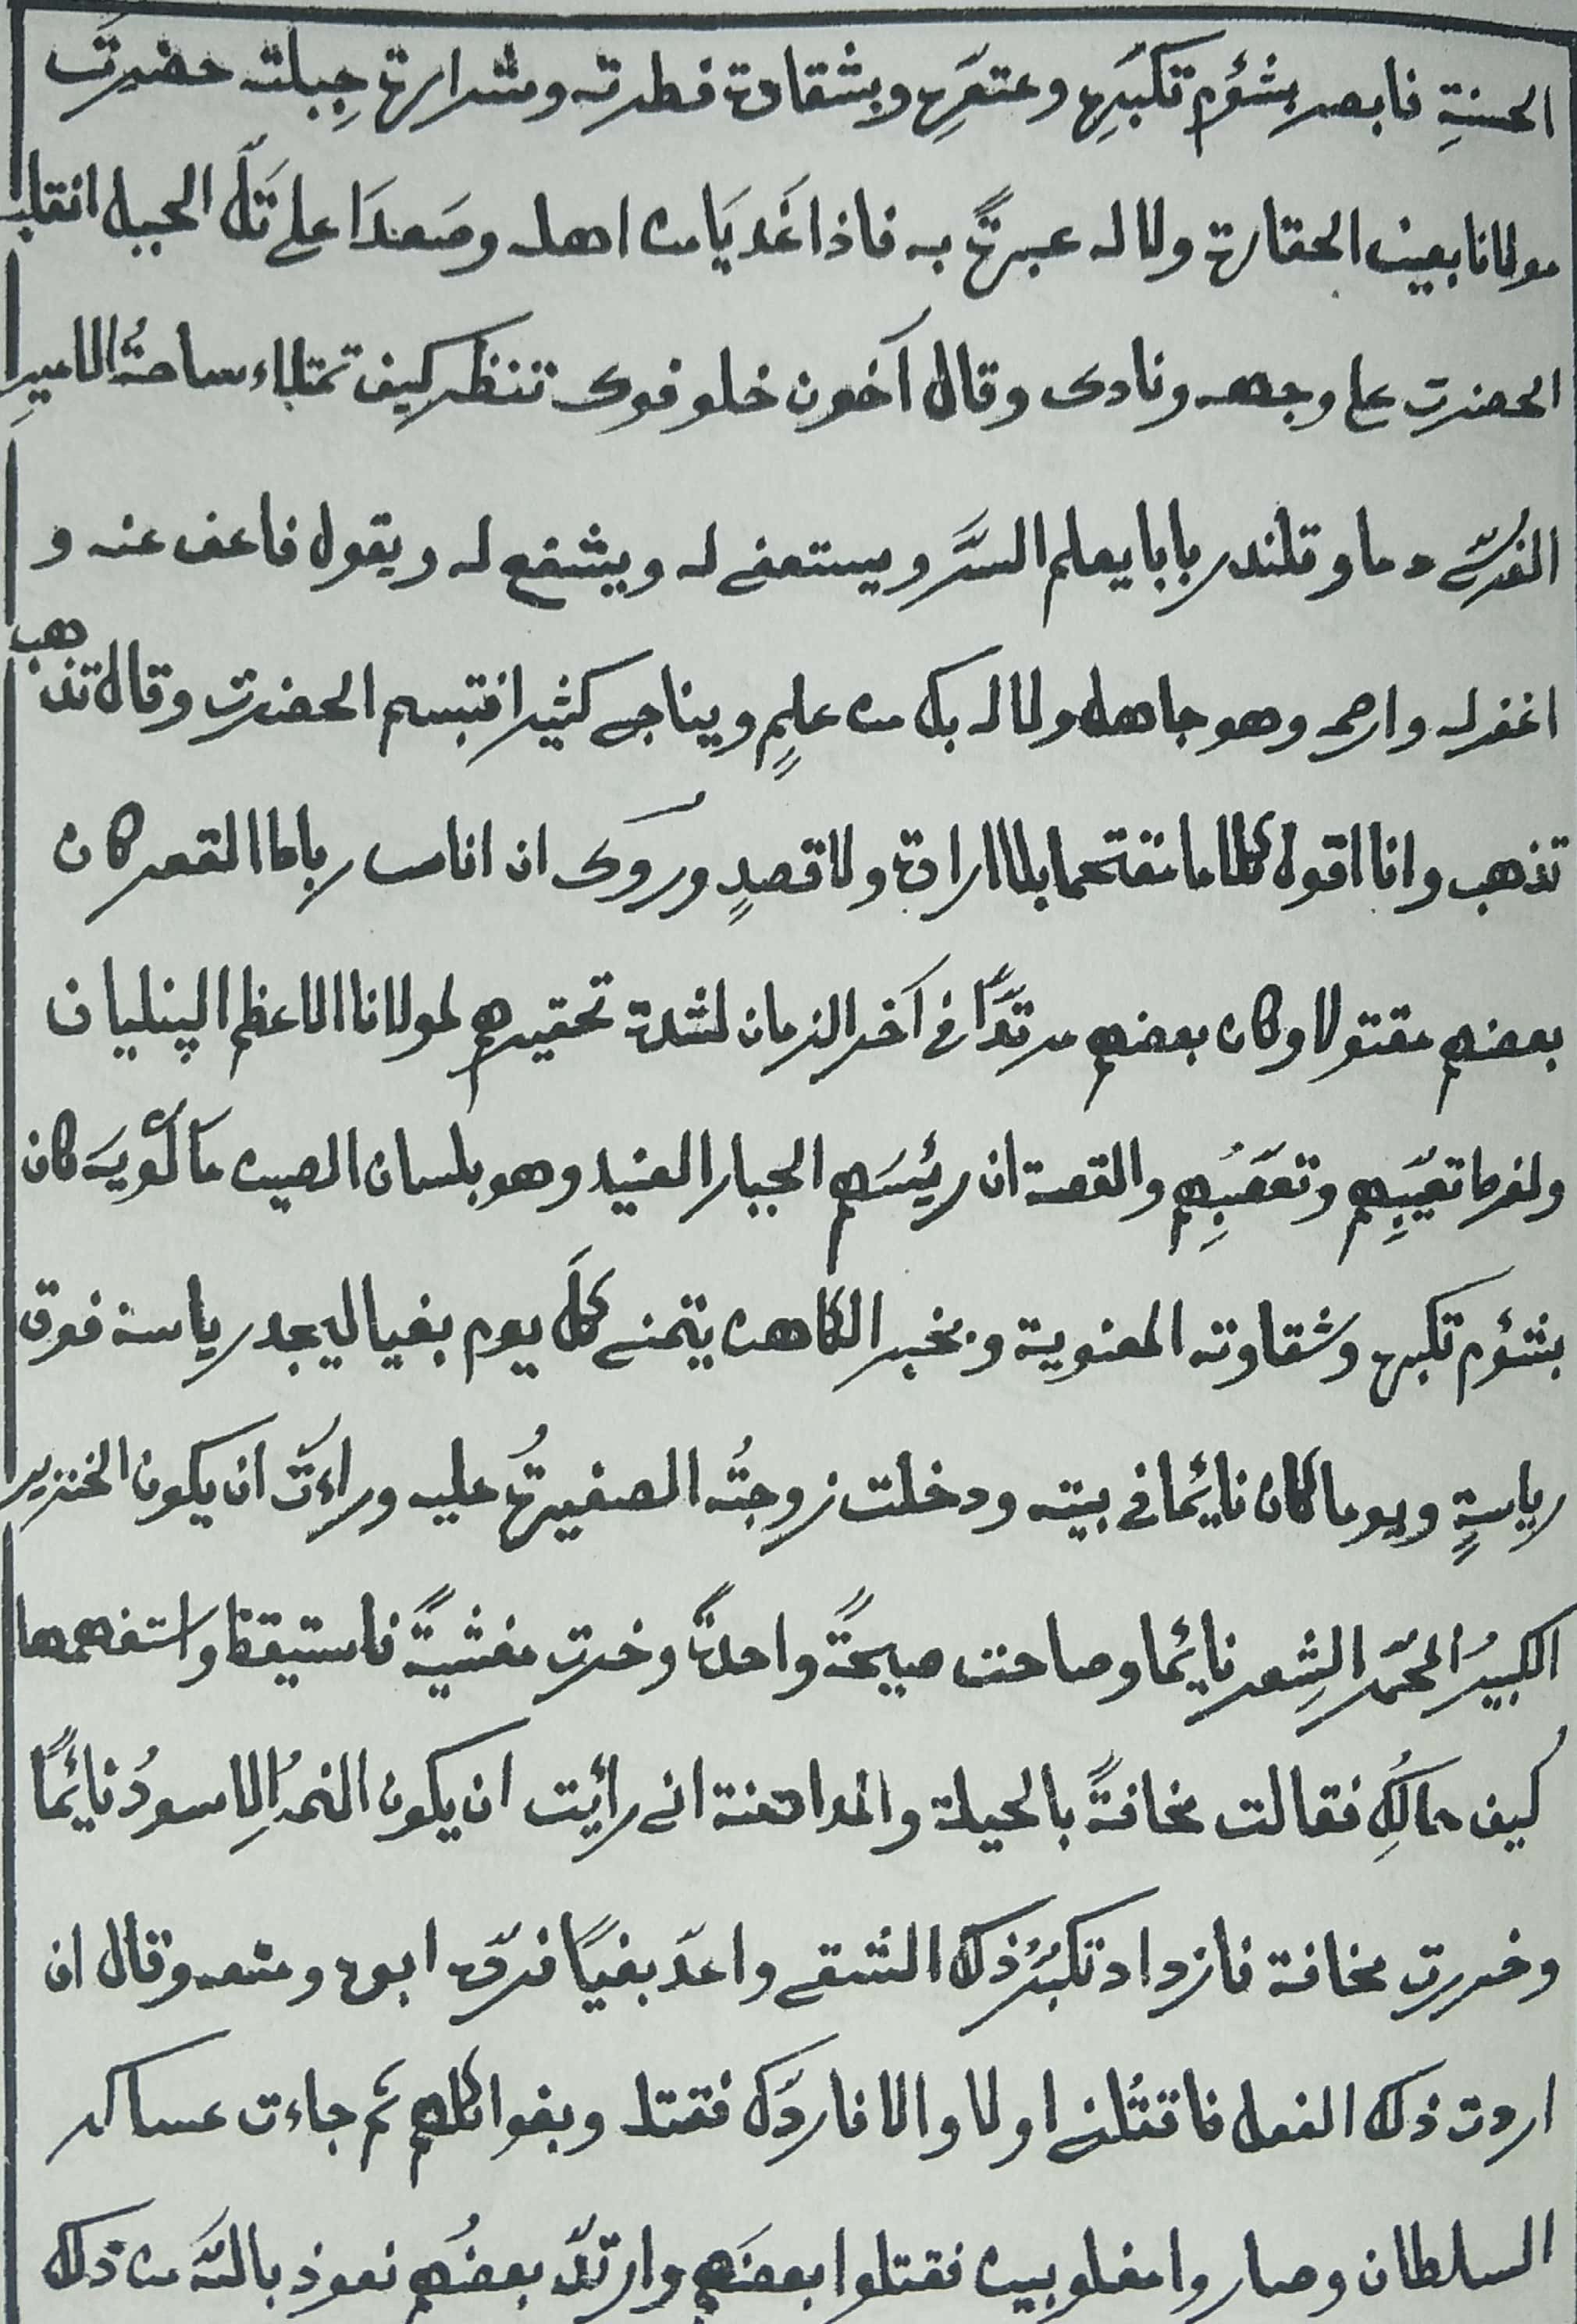 الحسنةِ فابصر بشؤم تكبّرِه وعتوِّه وبشقاوة فطرته وشرارة جِبلته حضرت
مولانا بعين الحقارة ولا له عبرةً به فاذا غَديَا من اهله وصَعدَا على تَلّ الجبل انقلب
الحضرت على وجهه ونادى وقال آخون خلو فوى تنظر كيف تمتلاء ساحةُ الامير
دما وقلندر بابا يعلم السَّر ويستعفى له ويشفع له ويقول فاعف عنه و
اغفر له وارحمه وهو جاهل ولا له بك من علمٍ ويناجى كثيرا فتبسم الحضرت وقال تذهب
تذهب وانا اقول كلاما منفتحا بلا ارادة ولا قصدٍ ورُوى ان اناس رباط القصر كان
بعضهم مقتولا وكان بعضهم مرتدًّا فى آخر الزمان لشدة تحقيرهم لمولانا الاعظم الپنليان
ولفرط تعيّبِهم وتعصّبِهم والقصة ان رئيسَهم الجبار العنيد وهو بلسان الصين مَا لُويَه كان
بشؤم تكبره وشقاوته المعنوية وبخبر الكاهن يتمنى كلّ يوم بغيا ليجد رياسة فوق
رياسةٍ ويوما كان نائما فى بيته ودخلت زوجتُه الصغيرةُ عليه وراءَت ان يكون الخنزير
الكبيرُ المحمّر الشِعر نائما وصاحت صيحةً واحدةً وخرت مغشيةً فاستيقظ واستفهمها
كيف مالُكِ فقالت مخافةً بالحيلة والمداهنة انى رأيت ان يكون النمرُ الاسودُ نائمًا
وخررت مخافة فازداد تكبّرُ ذلك الشقى واعدّ بغيًا فردّه ابوه ومنعه وقال ان
اردت ذلك الفعل فاقتُلنى اولا والا فاردّك فقتله وبغوا كلهم ثم جاءت عساكر
السلطان وصاروا مغلوبين فقتلوا بعضَهم وارتدّ بعضُهم نعوذ بالله من ذلك